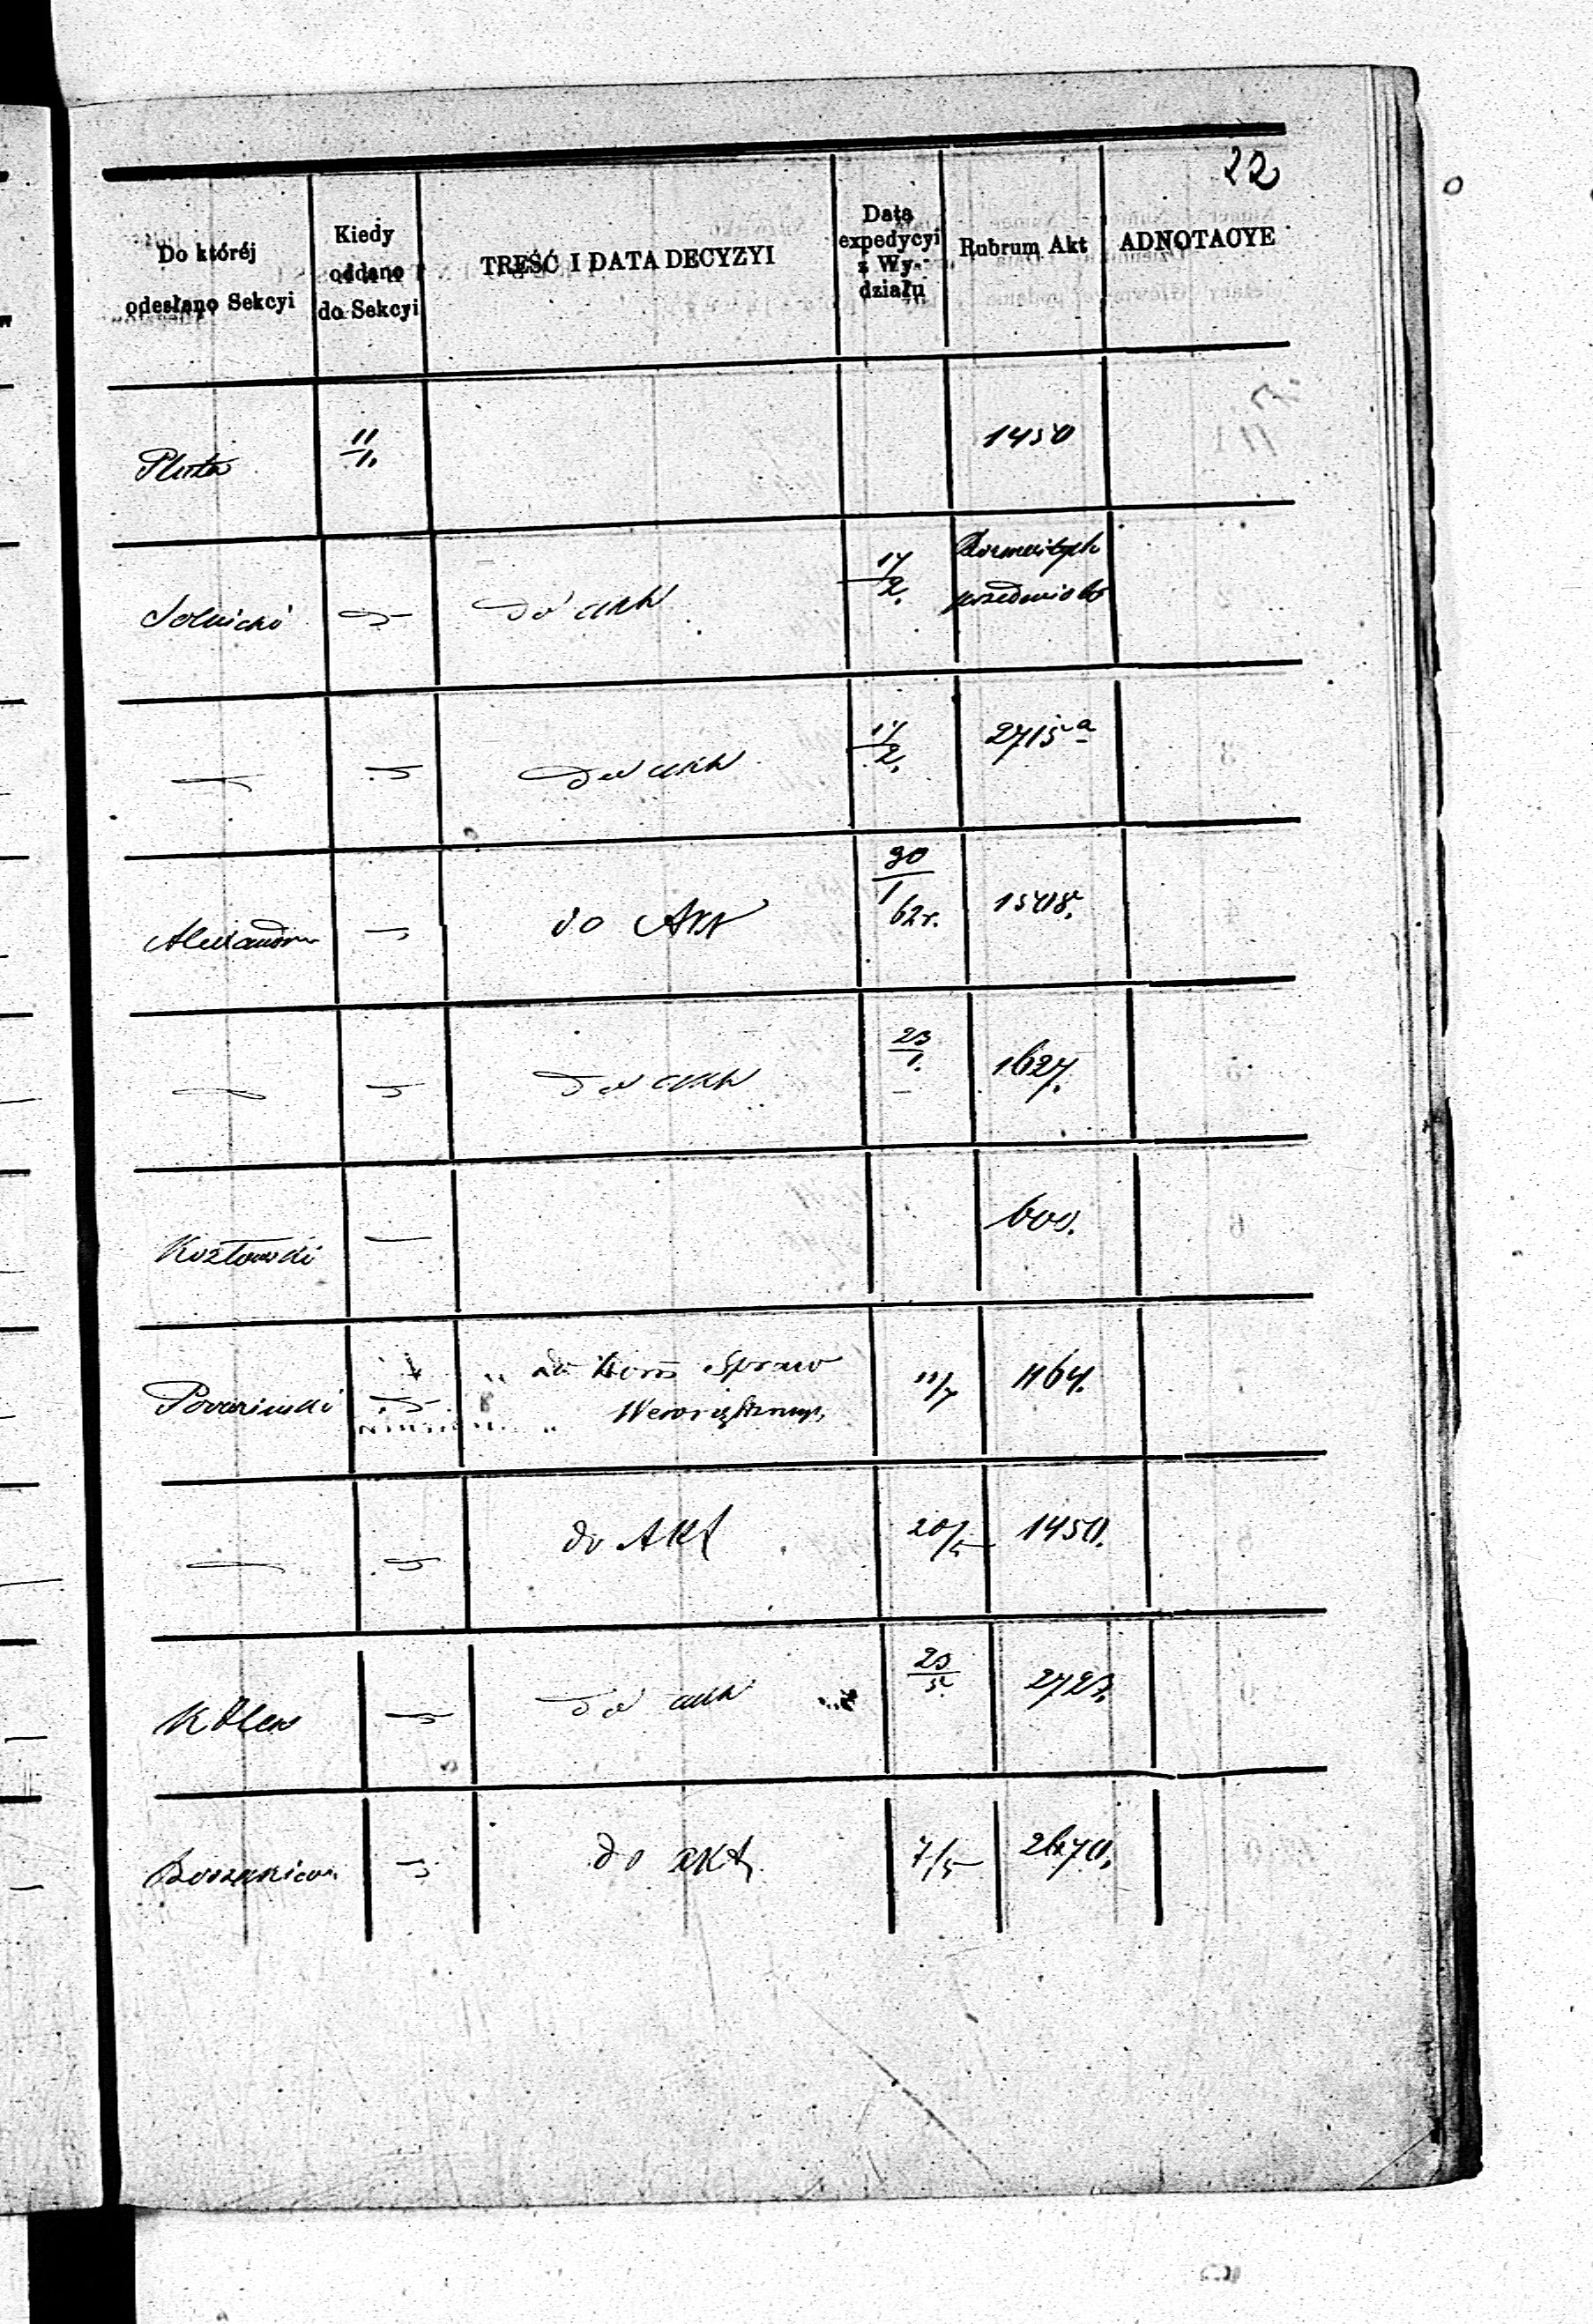 22
Do któréj odesłano Sekcyi
Kiedy oddano do Sekcyi
TREŚĆ I DATA DECYZYI
Data expedycyi z Wydziału
Rubrum Akt
ADNOTACYE
Pluta 11/1. 1450
Solnicki do akt 17/2. Rozmaitych przedmiotów
do akt 17/2. 2715 a
Alexandrow do Akt 30/1 62 r. 1508.
do akt 23/1. 1627.
Kozłowski 600.
do Kom Spraw 11/7 1164.
Wewnętrznych
do Akt 20/5 1450.
do akt 23/5 2723.
do akt 7/5 2470.